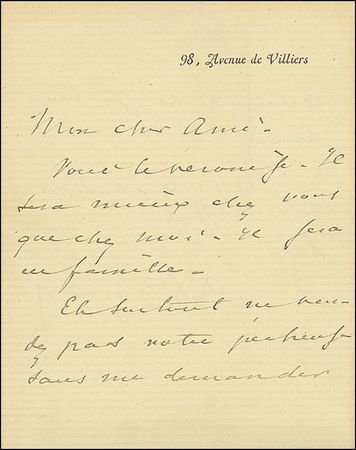 98, Avenue de Villiers
Mon cher Ami.
Voici le Véronèse. Il
sera mieux chez vous
que chez moi. Il sera
en famille.
Et surtout ne ven-
dez pas votre pêcheuse
sans me demander